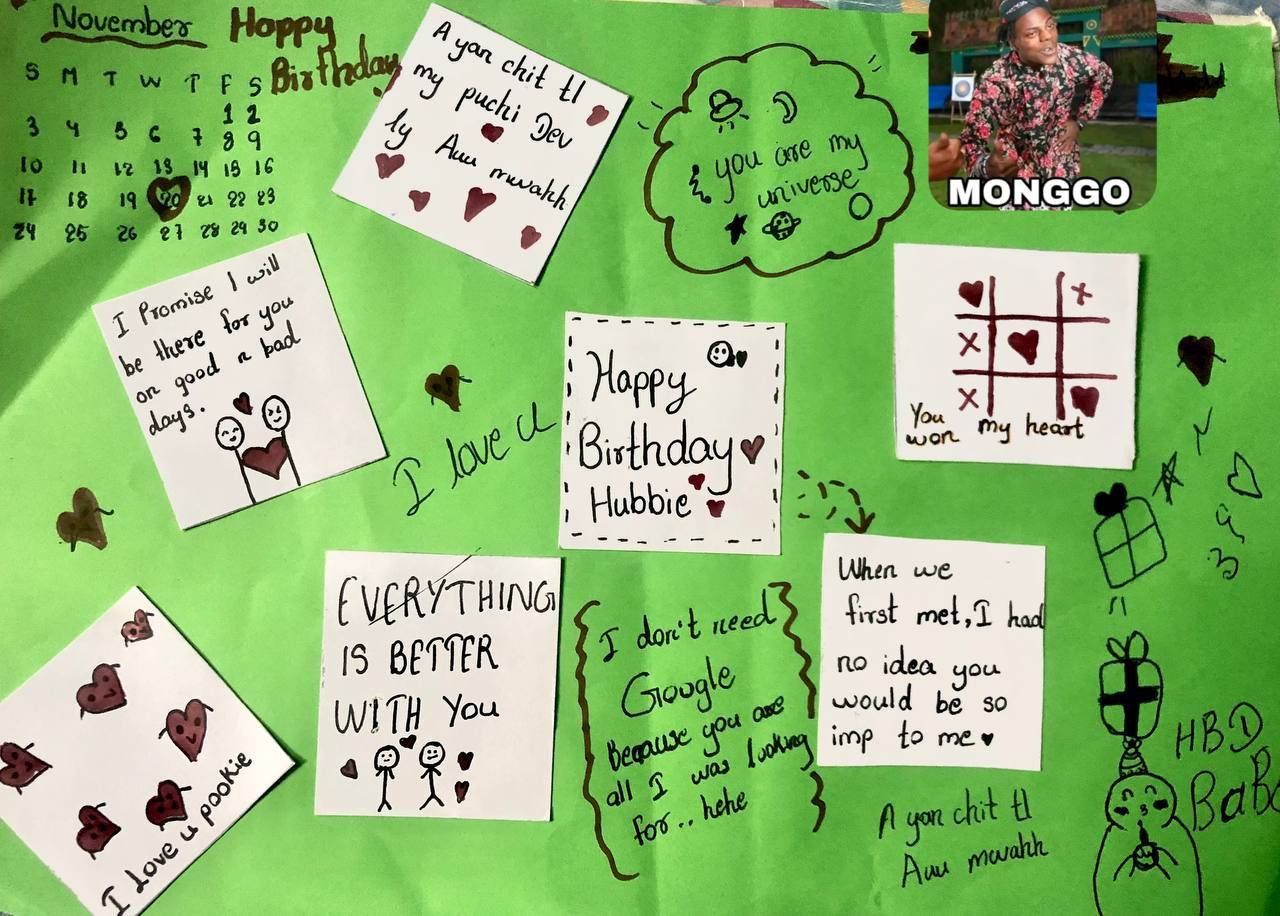 November
S M T W T F S
1 2
3 4 5 6 7 8 9
10 11 12 13 14 15 16
17 18 19 20 21 22 23
24 25 26 27 28 29 30
Happy
Birthday
A yan chit tl
my puchi Dev
ly Auu mwahh
you are my
universe
MONGGO
I Promise I will
be there for you
on good n bad
days.
I love u
Happy
Birthday
Hubbie
X
X
X
You
won my heart
EVERYTHING
IS BETTER
WITH YOU
I don't need
Google
Because you are
all I was looking
for.. hehe
When we
first met, I had
no idea you
would be so
imp to me
I love u pookie
A yan chit tl
Auu mwahh
HBD